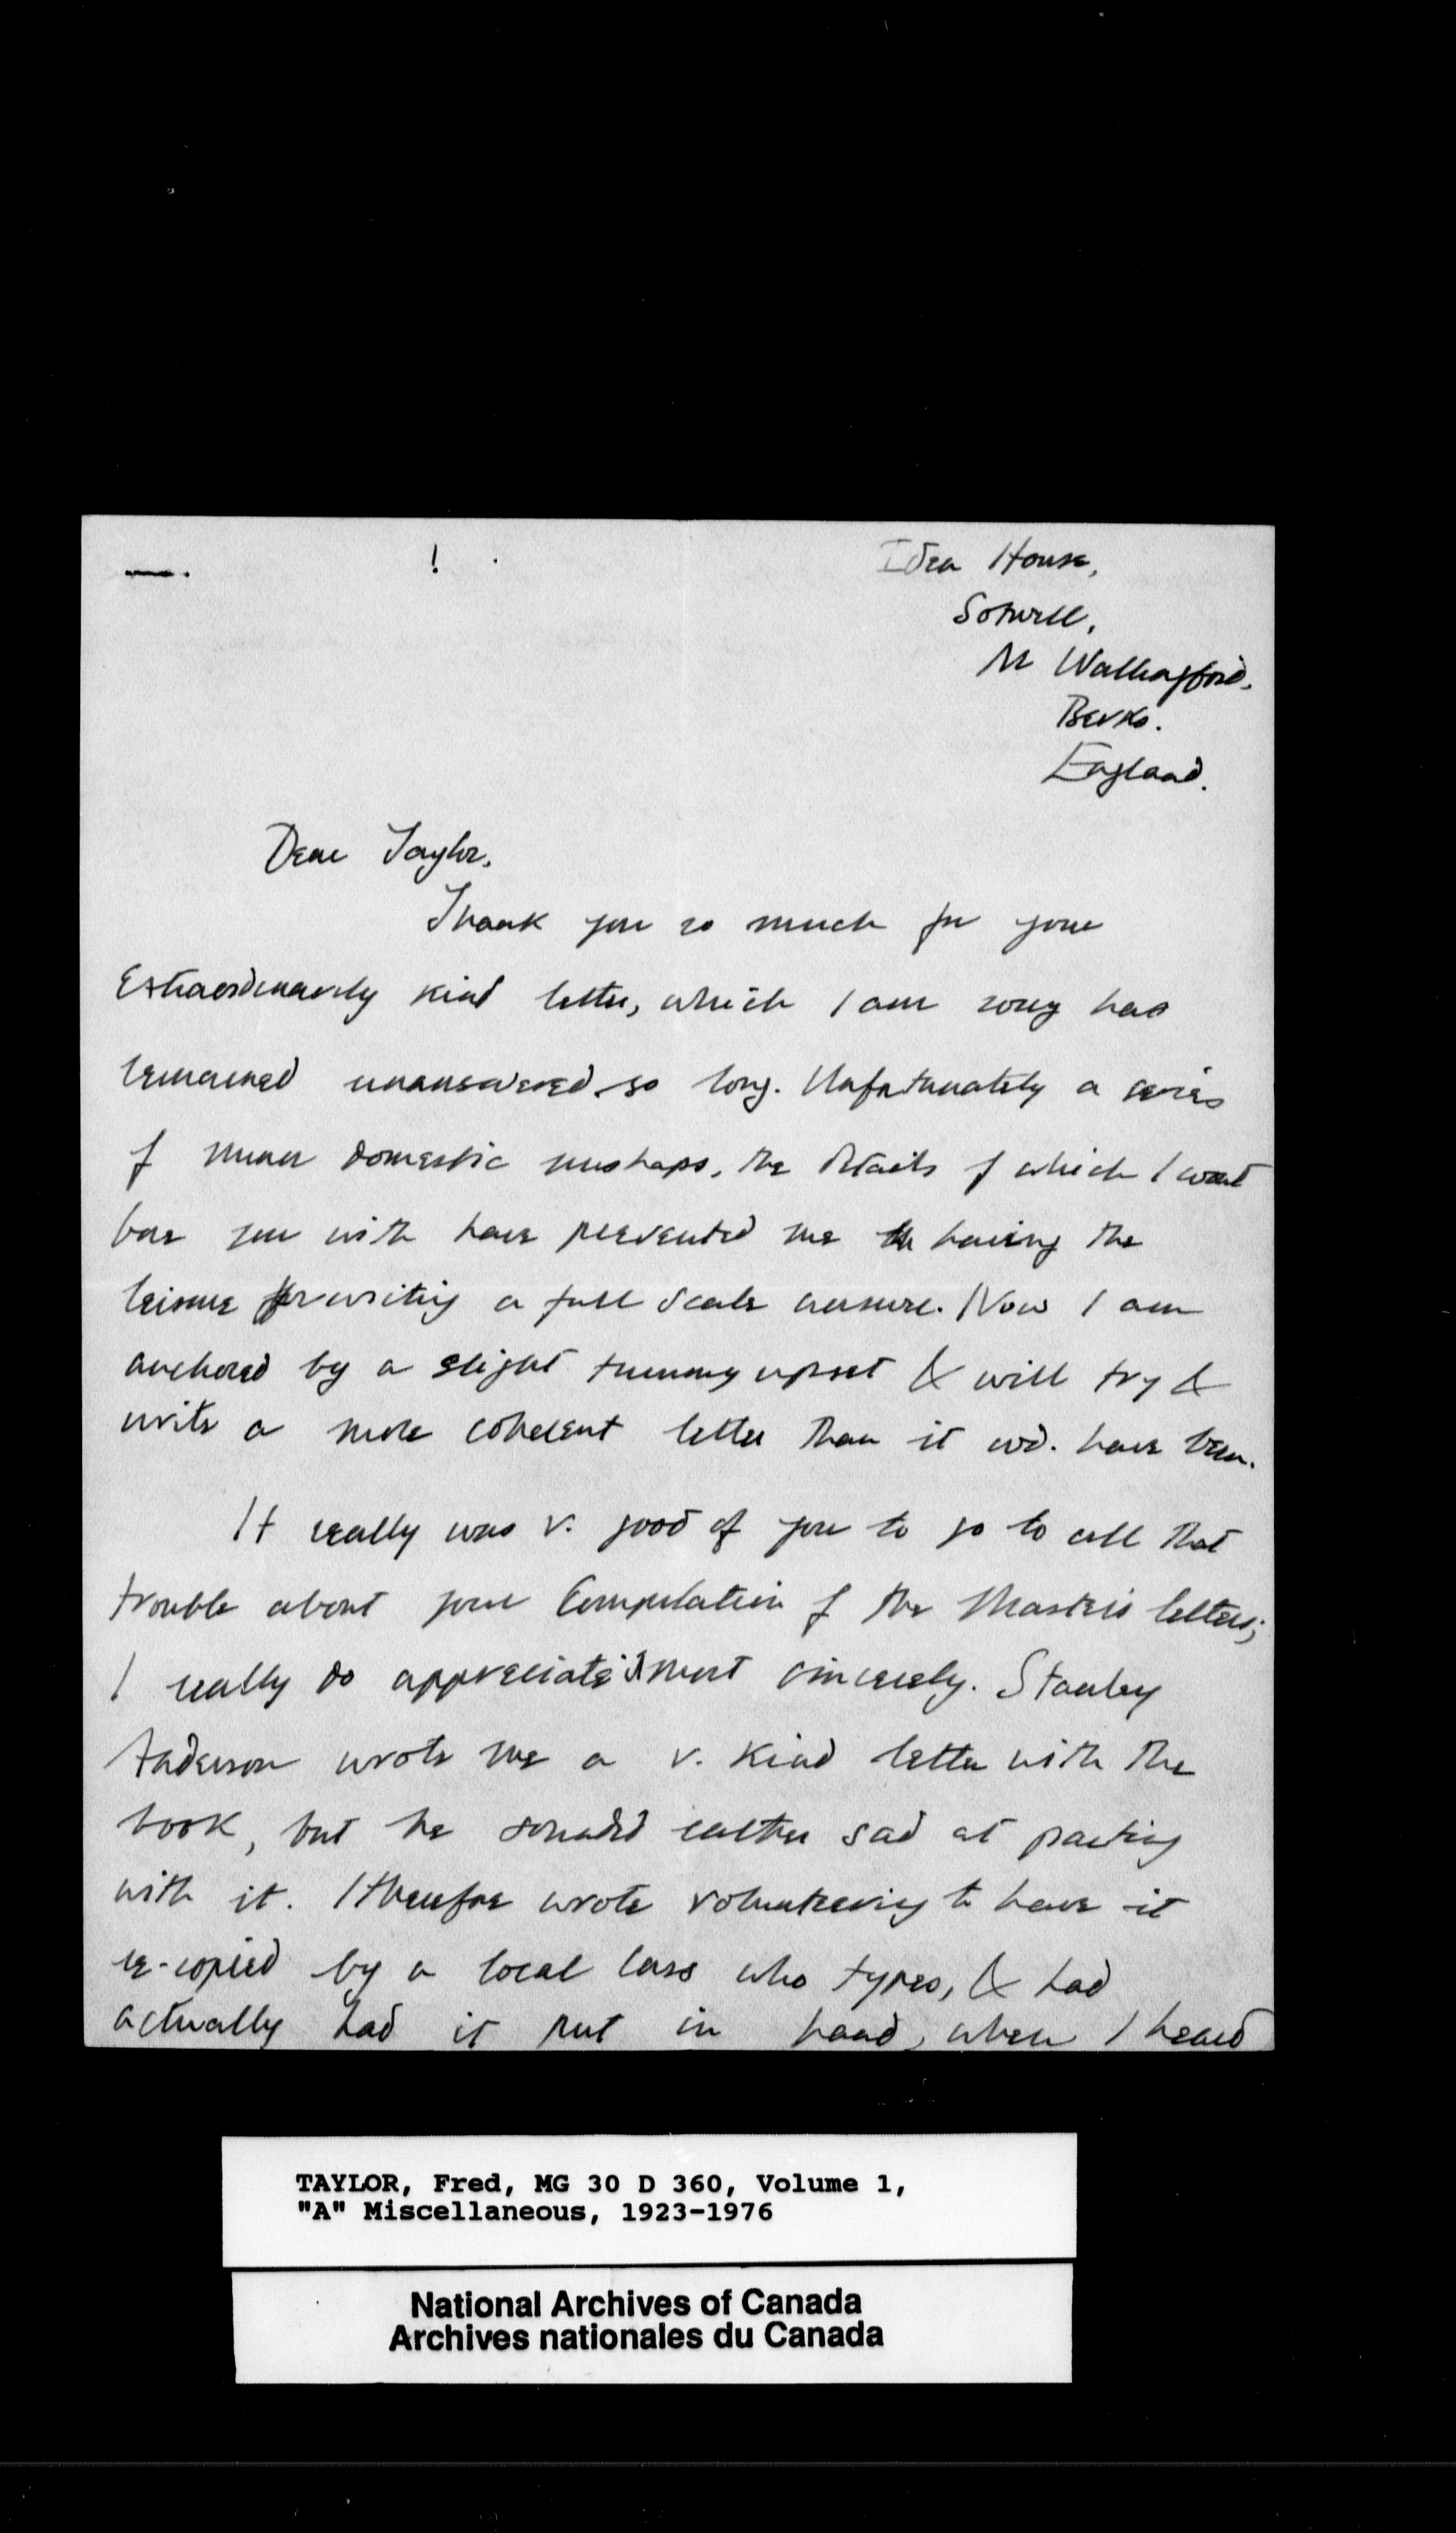 Idea House,
Sotwell,
Nr Wallingford.
Berks.
England.
Dear Taylor,
Thank you so much for your
extraordinarily kind letter, which I am sorry has
remained unanswered so long. Unfortunately a series
of minor domestic mishaps, the details of which I wont
bore you with have prevented me having the
leisure for writing a full scale answer. Now I am
anchored by a slight tummy upset & will try &
write a more coherent letter than it wd. have been.
It really was v. good of you to go to all that
trouble about your Compilation of the Master's letters;
I really do appreciate it most sincerely. Stanley
Anderson wrote me a v. kind letter with the
book, but he sounded rather sad at parting
with it. I therefore wrote volunteering to have it
re-copied by a local lass who types, & had
actually had it put in hand, when I heard
TAYLOR, Fred, MG 30 D 360, Volume 1,
"A" Miscellaneous, 1923-1976
National Archives of Canada
Archives nationales du Canada